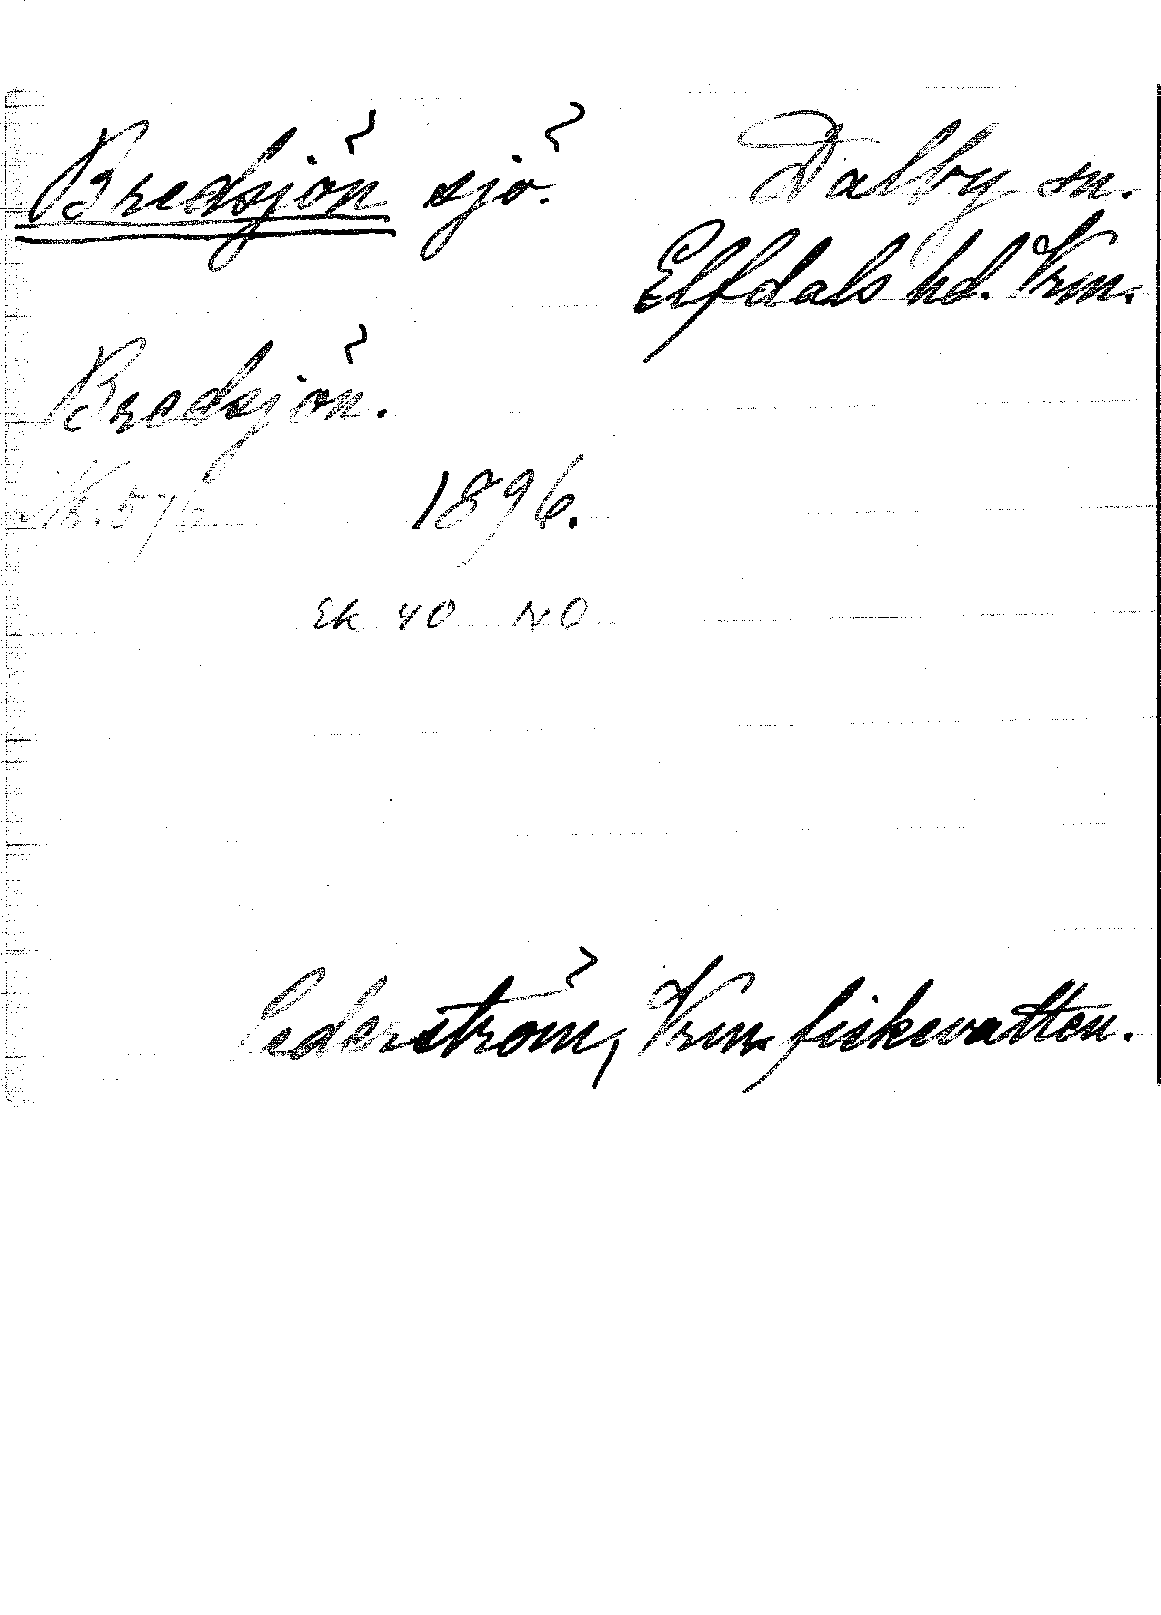 Bredsjön sjö. Dalby sn.
Elfdals hd. Vrm.
Bredsjön.
1896.
Ek 40 NO
Cederström, Vrm. fiskevatten.